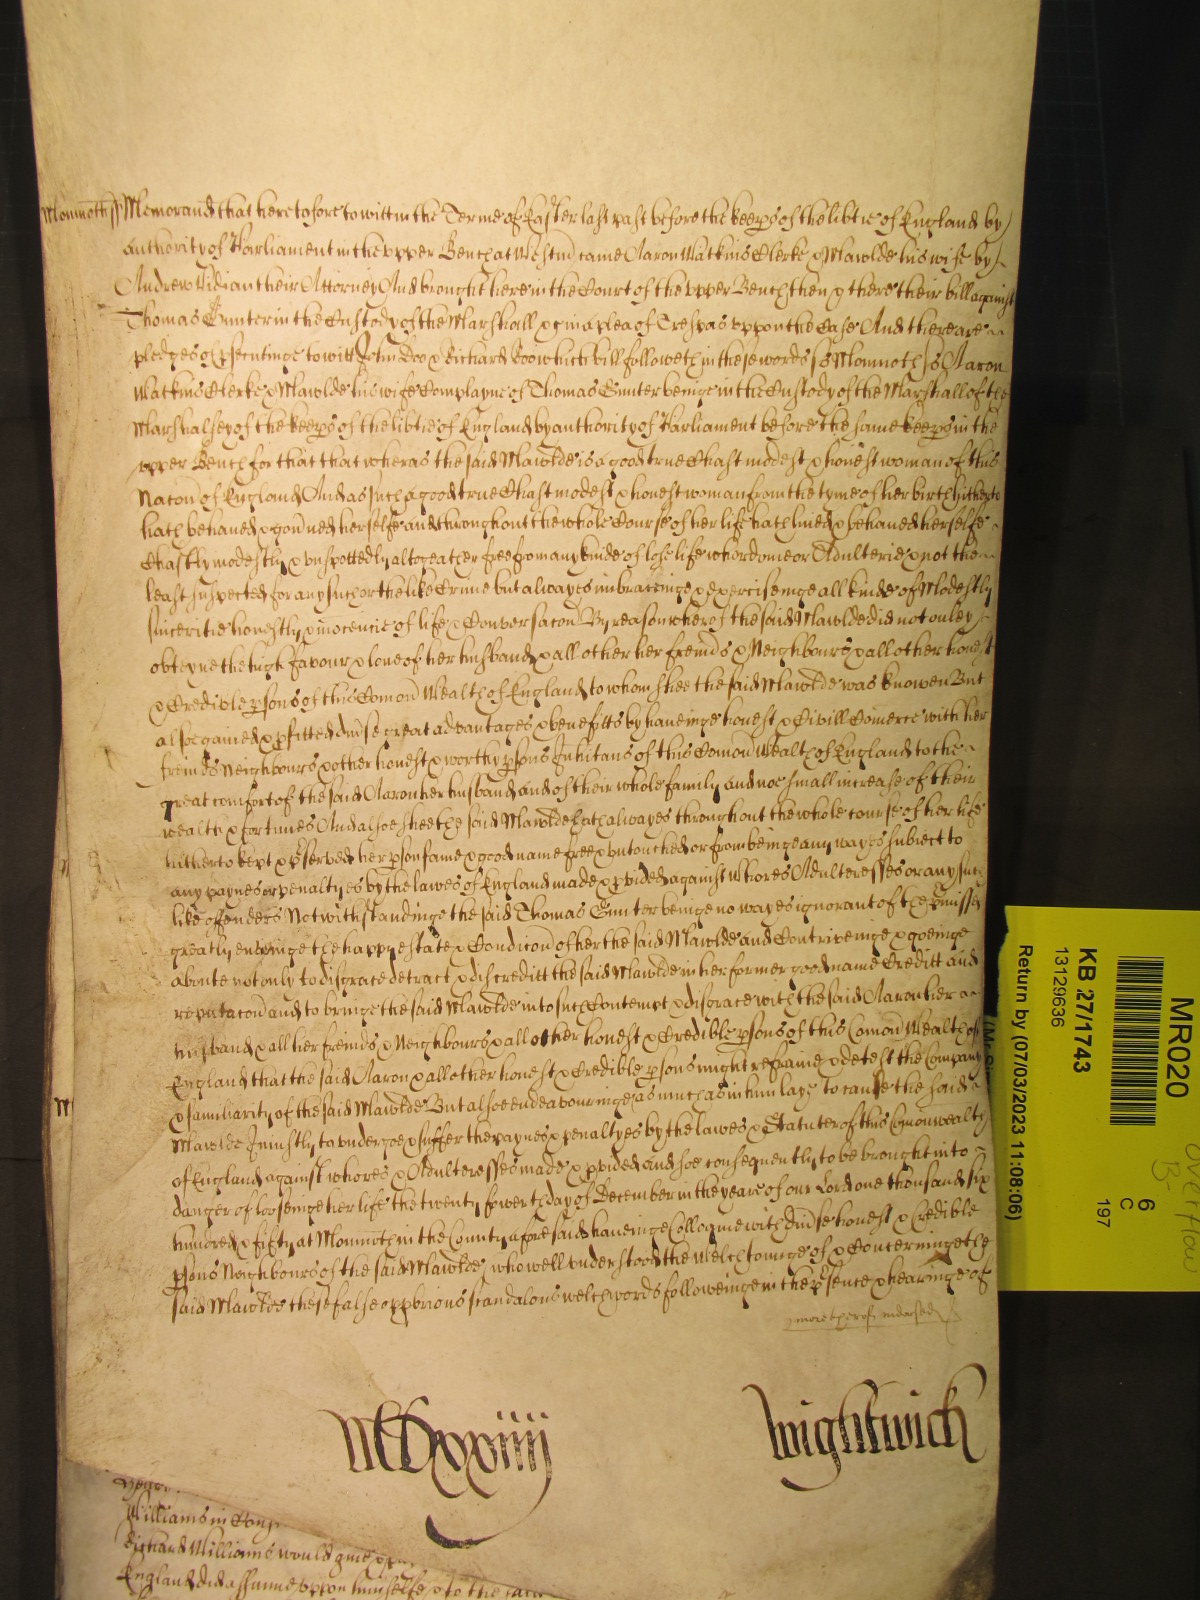 Monmoth ss Memorand that heretofore to witt in the Terme of Easter last past before the keeps of the libtie of England by
authority of Parliament in the upper Bench at Westm came Aaron Watkins Clerke & Mawlde his wife by
Andrew Vidian their Attorney And brought here in the Court of the upper Bench then & there their bill against
Thomas Gunter in the Custody of the Marshall &c in a plea of Trespas uppon the Case And there are
pledges of psecutinge to witt John Doo & Richard Roo which bill followeth in these words ss Monmoth ss Aaron
Watkins Clerke & Mawlde his wife Complayne of Thomas Gunter beinge in the Custody of the Marshall of the
Marshalsey of the keeps of the libtie of England by authority of Parliament before the same keeps in the
upper Bench for that that wheras the said Mawlde is a good true Chast modest & honest woman of this
Nacon of England And as such a good true Chast modest & honest woman from the tyme of her birth hitherto
hath behaued & gouned herselfe and throughout the whole Course of her life hath liued & behaued herselfe
Chastly modestly & vnspottedly altogeather free from any kinde of lose life whordome or Adulterie & not the
least suspected for any such or the like Crime but alwayes imbraceinge & Exerciseinge all kinde of Modestly
sinceritie honestly & inocencie of life & Conversacon By reason wherof the said Mawlde did not onley
obteyne the high favour & loue of her husband & all other her freinds & Neighbours & all other honest
& Credible psons of this Comon Wealth of England to whom shee the said Mawlde was knowen But
alsoe gained & pfitted diuse great advantages & benefitts by haueinge honest & Civill Comerce with her
freinds Neighbours & other honest & worthy psons Inhitans of this Comon Wealth of England to the
great comfort of the said Aaron her husband and of their whole family and noe small increase of their
wealth & fortunes And alsoe shee the said Mawlde hath alwayes throughout the whole course of her life
hitherto kept & pserved her pson fame & good name free & vntouched or from beinge any wayes subiect to
any paynes or penaltyes by the lawes of England made & pvided against Whores Adulteresses or any such
like offenders Notwithstandinge the said Thomas Gunter beinge no wayes ignorant of the pmisses
greatly envyinge the happy estate & Condicon of her the said Mawlde and Contriveinge & goeinge
aboute not only to disgrace detract & discreditt the said Mawlde in her former good name Creditt and
reputacon and to bringe the said Mawlde into such Contempt & disgrace with the said Aaron her
husband & all her freinds & Neighbours & all other honest & Credible psons of this Comon Wealth of
England that the said Aaron & all other honest & Credible psons might refraine & detest the Company
& familiarity of the said Mawlde But alsoe endeavouringe as much as in him laye to cause the said
Mawlde Iniustly to vndergoe & suffer the paynes & penaltyes by the lawes & Statutes of this Comonwealth
of England against whores & Adulteresses made & pvided and soe consequently to be brought into
danger of looseinge her life the twenty fowerth day of December in the yeare of our Lord one thousand six
hundred & fifty at Monmoth in the County aforesaid haueinge Colloquie with diuse honest & Credible
psons Neighbours of the said Mawlde who well vnderstood the Welch tounge of & Concerninge the
said Mawlde these false opprobrious scandalous welch words followeinge in the psence & hearinge of
more therof indorsed
MDxxiiij
Wightwick
Williams in
Richard Williams would giue
England did assume vppon himselfe & to the
MR020
KB 27/1743
13129636
6
C
197
Return by (07/03/2023 11:08:06)
overflow
B-